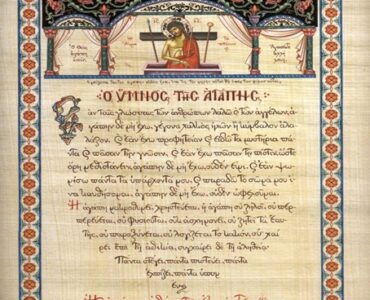 Ὁ ὝΜΝΟΣ ΤΗΣ ἈΓΑΠΗΣ:
Ἐὰν ταῖς γλώσσαις τῶν ἀνθρώπων λαλῶ ϗ τῶν ἀγγέλων,
ἀγάπην δὲ μὴ ἔχω, γέγονα χαλκὸς ἠχῶν ἢ κύμβαλον ἀλα-
λάζον. ϗ ἐὰν ἔχω προφητείαν ϗ εἰδῶ τὰ μυστήρια πάν-
τα ϗ πᾶσαν τὴν γνῶσιν, ϗ ἐὰν ἔχω πᾶσαν τὴν πίστιν, ὥστε
ὄρη μεθιστάνειν, ἀγάπην δὲ μὴ ἔχω, οὐδέν εἰμι. ϗ ἐὰν ψω-
μίσω πάντα τὰ ὑπάρχοντά μου, ϗ παραδῶ τὸ σῶμά μου ἵ-
να καυθήσομαι, ἀγάπην δὲ μὴ ἔχω, οὐδὲν ὠφελοῦμαι.
Ἡ ἀγάπη μακροθυμεῖ, χρηστεύεται, ἡ ἀγάπη οὐ ζηλοῖ, οὐ περ-
περεύεται, οὐ φυσιοῦται, οὐκ ἀσχημονεῖ, οὐ ζητεῖ τὰ ἑαυ-
τῆς, οὐ παροξύνεται, οὐ λογίζεται τὸ κακόν, οὐ χαί-
ρει ἐπὶ τῇ ἀδικίᾳ, συγχαίρει δὲ τῇ ἀληθείᾳ·
Πάντα στέγει, πάντα πιστεύει, πάντα
ἐλπίζει, πάντα ὑπομ-
ένει